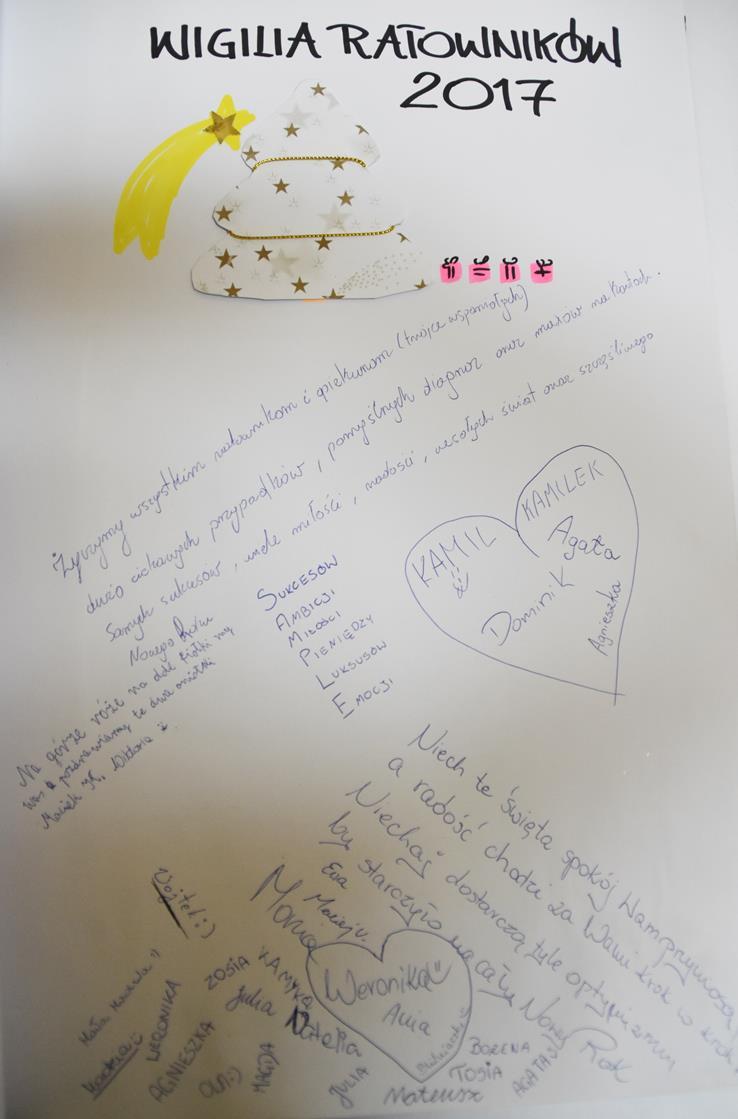 WIGILIA RATOWNIKÓW
2017
Życzymy wszystkim ratownikom i opiekunom (trójce wspaniałych)
dużo ciekawych przypadków, pomyślnych diagnoz oraz maxów na kartach.
Samych sukcesów, wiele miłości, radości, wesołych świat oraz szczęśliwego
Nowego Roku
SUKCESÓW
AMBICJI
MIŁOŚCI
PIENIĘDZY
LUKSUSÓW
EMOCJI
KAMIL
KAMILEK
Agata
Dominik
Agnieszka
Na górze róże na dole fiołki my
Was pozdrawiamy te dwa
Maciek K, Wiktoria
Niech te święta spokój Wam przyniosą
a radość chodzi za Wami krok w krok
Niechaj dostarczą tyle optymizmu
by starczyło na cały Nowy Rok
Ewa
Maciej
Wojtek :)
ZOSIA
KAMYK
Julia
Natalia
Weronika
Ania
WERONIKA
AGNIESZKA
Ola :)
MAGDA
JULIA
Mateusz
BOŻENA
TOSIA
AGATA